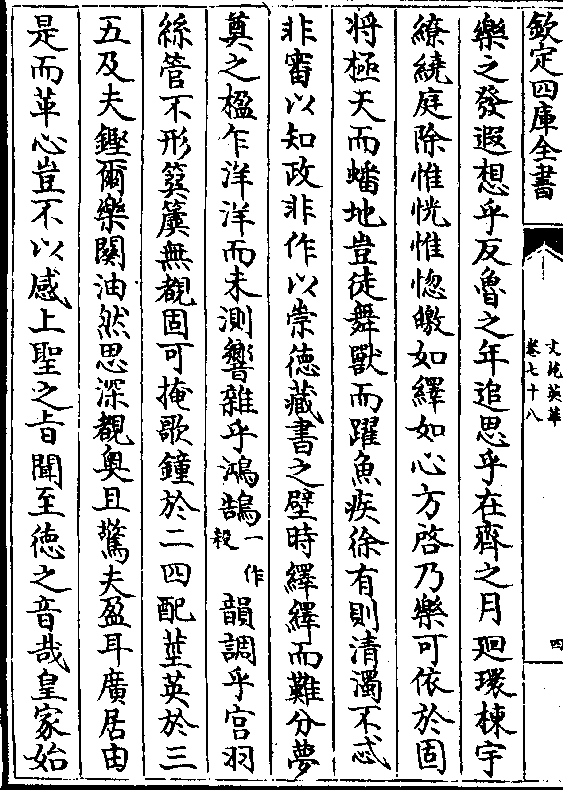 欽定四庫全書
文苑英華
卷七十八
四
樂之發遐想乎反魯之年追思乎在齊之月廻環棟宇
繚繞庭除惟恍惟惚皦如繹如心方啓乃樂可依於固
将極天而蟠地豈徒舞獸而躍魚疾徐有則清濁不忒
非審以知政非作以崇德藏書之壁時繹繹而難分夢
奠之楹乍洋洋而未測響雜乎鴻鵠一作㲉韻調乎宫羽
絲管不形簨簴無覩固可掩歌鐘於二四配莖英於三
五及夫鏗爾樂闋油然思深觀奥且驚夫盈耳廣居由
是而革心豈不以感上聖之㫖聞至德之音哉皇家始